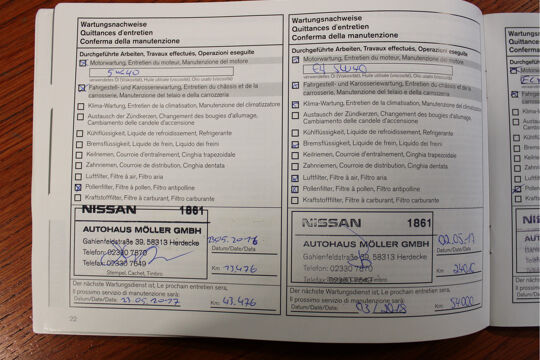 Wartungsnachweise
Quittances d'entretien
Conferma della manutenzione
Durchgeführte Arbeiten, Travaux effectués, Operazioni eseguite
Motorwartung, Entretien du moteur, Manutenzione del motore
5W40
verwendetes Öl (Viskosität), Huile utilisée (viscosité), Olio usato (viscosità)
Fahrgestell- und Karosseriewartung, Entretien du châssis et de la
carrosserie, Manutenzione del telaio e della carrozzeria
Klima-Wartung, Entretien de la climatisation, Manutenzione del climatizzatore
Austausch der Zündkerzen, Changement des bougies d'allumage,
Cambiamento delle candele d'accensione
Kühlflüssigkeit, Liquide de refroidissement, Refrigerante
Bremsflüssigkeit, Liquide de frein, Liquido dei freini
Keilriemen, Courroie d'entraînement, Cinghia trapezoidale
Zahnriemen, Courroie de distribution, Cinghia dentata
Luftfilter, Filtre à air, Filtro aria
Pollenfilter, Filtre à pollen, Filtro antipolline
Kraftstofffilter, Filtre à carburant, Filtro carburante
NISSAN 1861
AUTOHAUS MÖLLER GMBH
Gahlenfeldstraße 39, 58313 Herdecke
Telefon: 02330 7870
Telefax: 02330 7649
Stempel, Cachet, Timbro
23.05.2016
Datum/Date/Data
Km:
Der nächste Wartungsdienst ist, Le prochain entretien sera,
Il prossimo servizio di manutenzione sarà:
Datum/Date/Data: 23.05.2017 Km: 43.476
22
Wartungsnachweise
Quittances d'entretien
Conferma della manutenzione
Durchgeführte Arbeiten, Travaux effectués, Operazioni eseguite
Motorwartung, Entretien du moteur, Manutenzione del motore
5W40
verwendetes Öl (Viskosität), Huile utilisée (viscosité), Olio usato (viscosità)
Fahrgestell- und Karosseriewartung, Entretien du châssis et de la
carrosserie, Manutenzione del telaio e della carrozzeria
Klima-Wartung, Entretien de la climatisation, Manutenzione del climatizzatore
Austausch der Zündkerzen, Changement des bougies d'allumage,
Cambiamento delle candele d'accensione
Kühlflüssigkeit, Liquide de refroidissement, Refrigerante
Bremsflüssigkeit, Liquide de frein, Liquido dei freini
Keilriemen, Courroie d'entraînement, Cinghia trapezoidale
Zahnriemen, Courroie de distribution, Cinghia dentata
Luftfilter, Filtre à air, Filtro aria
Pollenfilter, Filtre à pollen, Filtro antipolline
Kraftstofffilter, Filtre à carburant, Filtro carburante
NISSAN 1861
AUTOHAUS MÖLLER GMBH
Gahlenfeldstraße 39, 58313 Herdecke
Telefon: 02330 7870
Telefax: 02330 7649
02.05.17
Datum/Date/Data
Km:
Der nächste Wartungsdienst ist, Le prochain entretien sera,
Il prossimo servizio di manutenzione sarà:
Datum/Date/Data: Km: 54000